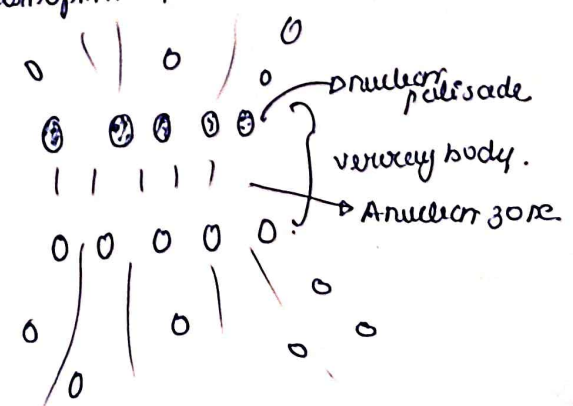 nuclear
palisade
verocay body.
Anuclear zone